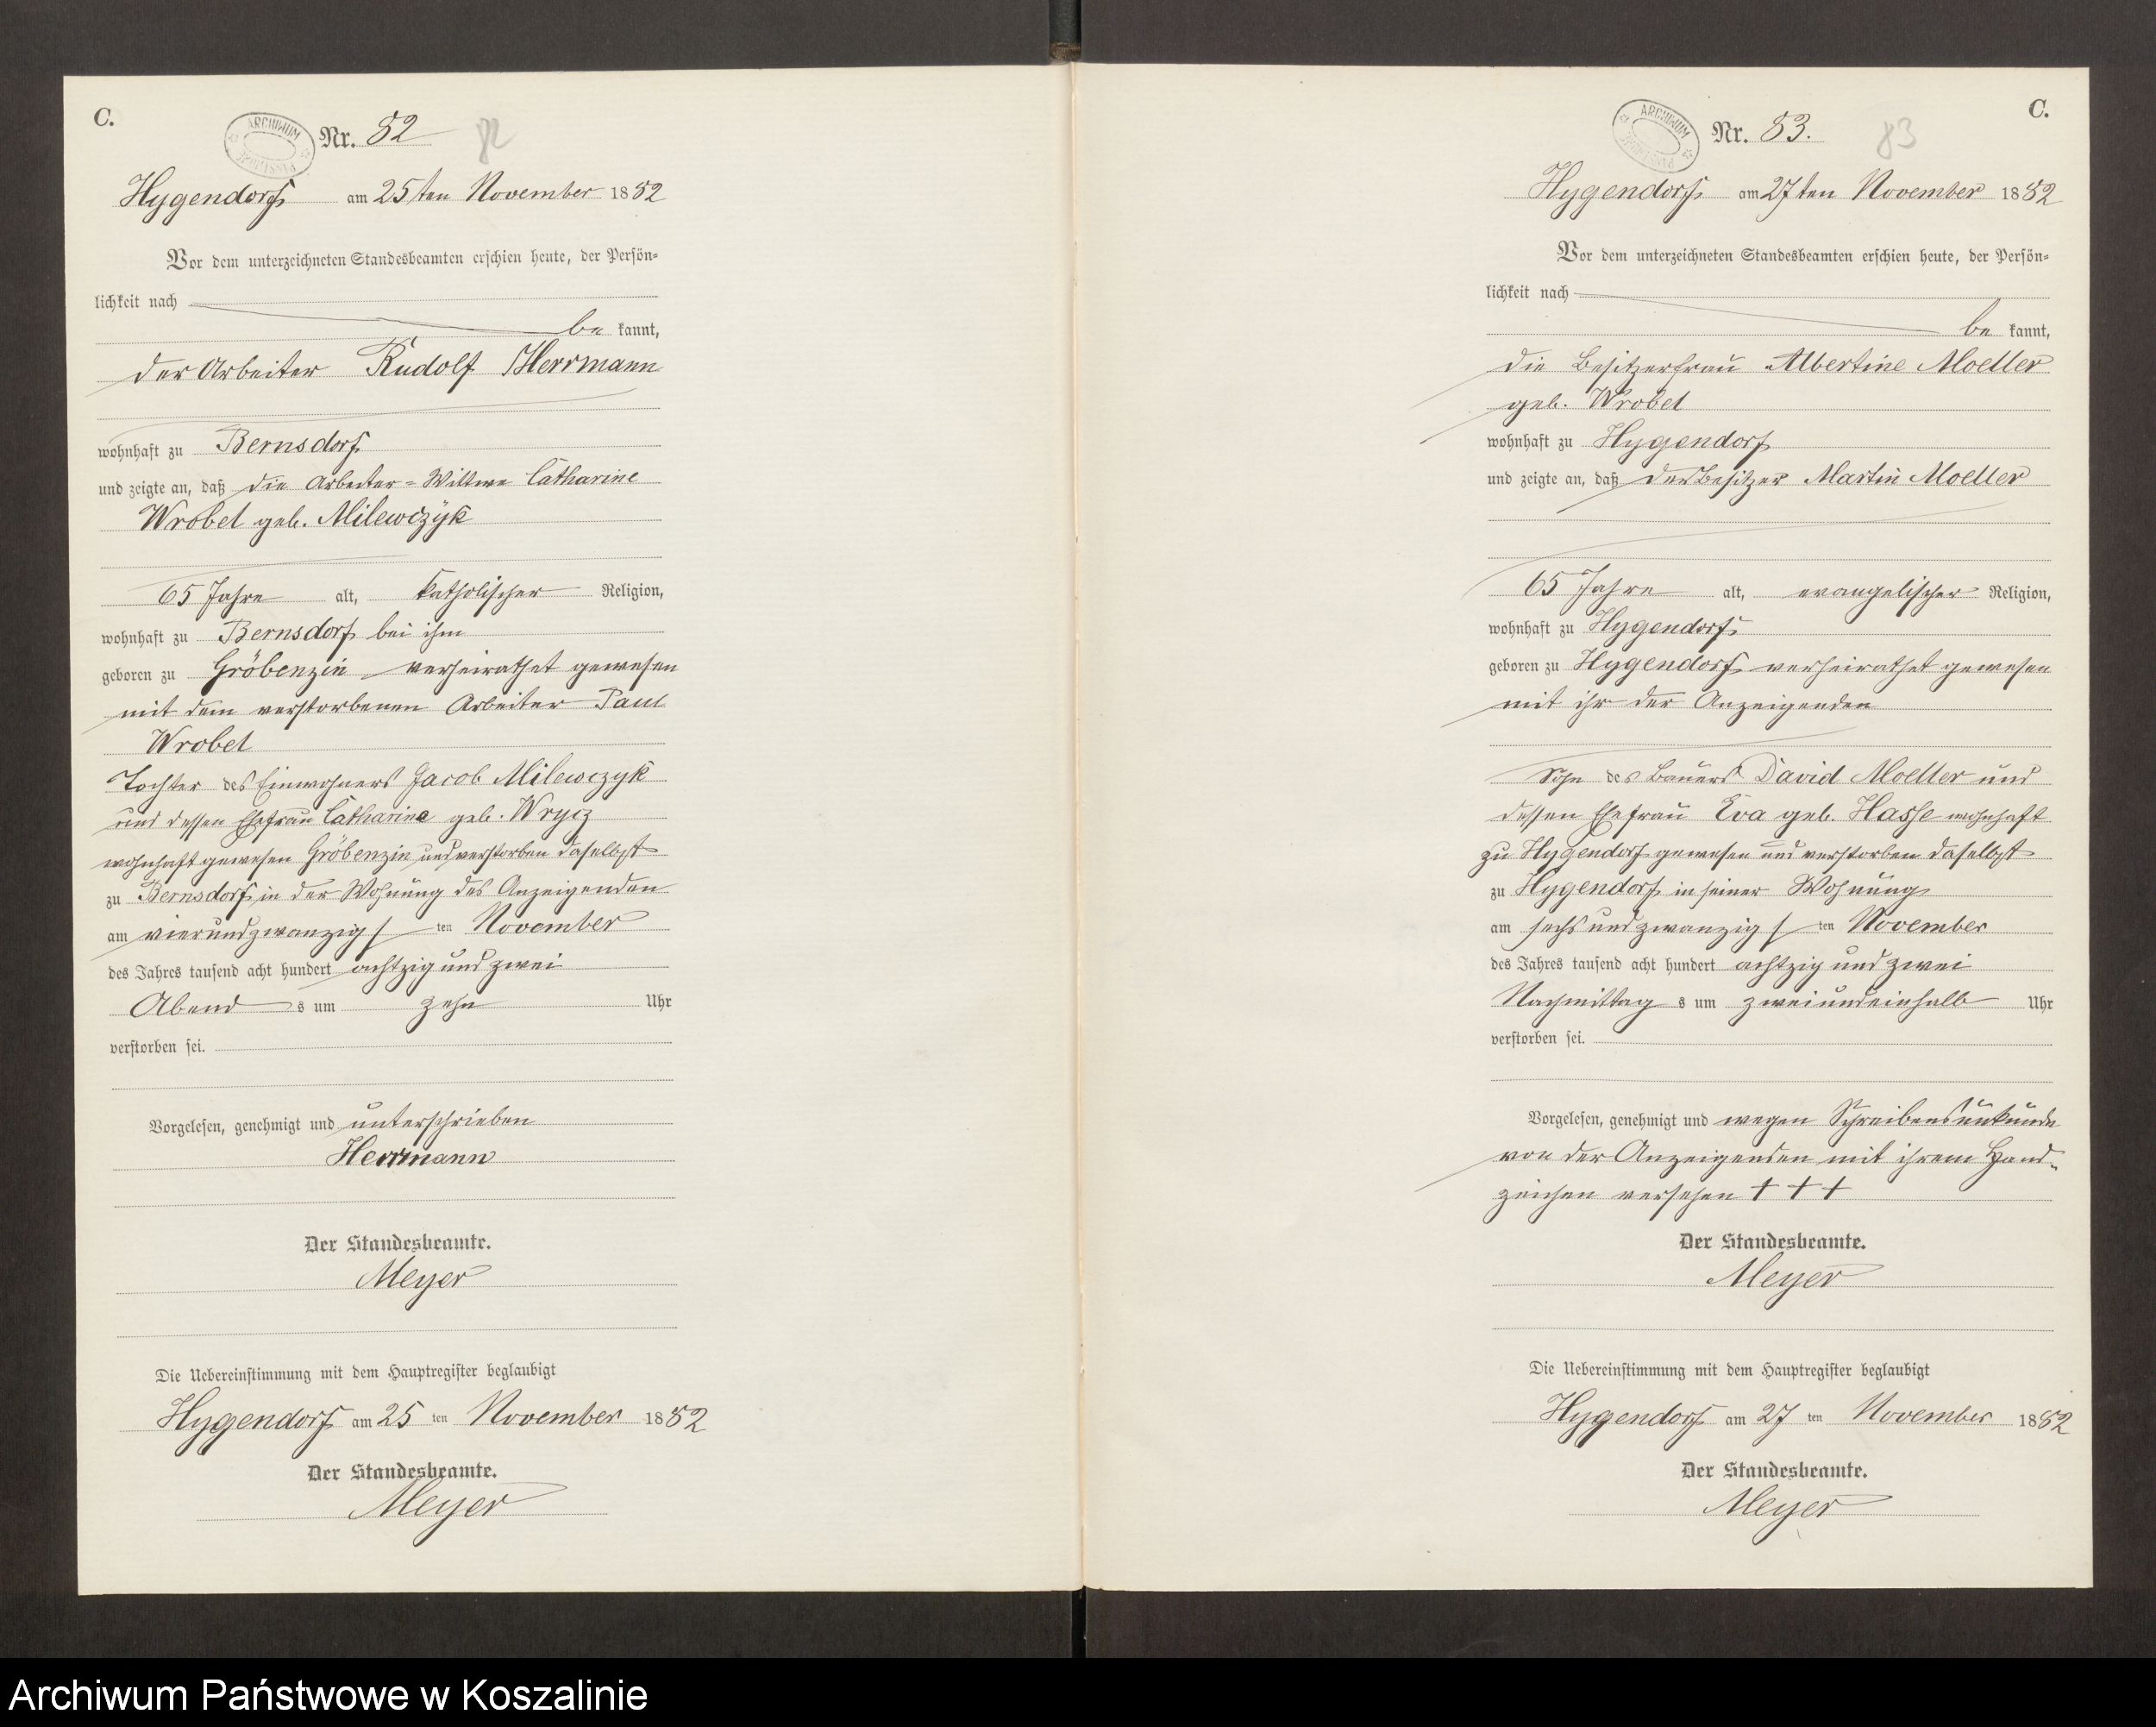 C.
ARCHIWUM
Nr. 82
82
Hygendorf am 25ten November 1882
Vor dem unterzeichneten Standesbeamten erschien heute, der Persön-
lichkeit nach
be kannt,
der Arbeiter Rudolf Herrmann
wohnhaft zu Bernsdorf
und zeigte an, daß die Arbeiter-Wittwe Catharine
Wrobel geb. Milewczyk
65 Jahre alt, katholischer Religion,
wohnhaft zu Bernsdorf bei ihm
geboren zu Gröbenzin verheirathet gewesen
mit dem verstorbenen Arbeiter Paul
Wrobel
Tochter des Einwohners Jacob Milewczyk
und dessen Ehefrau Catharine geb. Wrycz
wohnhaft gewesen Gröbenzin und verstorben daselbst
zu Bernsdorf in der Wohnung des Anzeigenden
am vierundzwanzigs ten November
des Jahres tausend acht hundert achtzig und zwei
Abend s um zehn Uhr
verstorben sei.
Vorgelesen, genehmigt und unterschrieben
Herrmann
Der Standesbeamte.
Meyer
Die Uebereinstimmung mit dem Hauptregister beglaubigt
Hygendorf am 25 ten November 1882
Der Standesbeamte.
Meyer
C.
ARCHIWUM
Nr. 83.
83
Hygendorf am 27ten November 1882
Vor dem unterzeichneten Standesbeamten erschien heute, der Persön-
lichkeit nach
be kannt,
die Besitzerfrau Albertine Moeller
geb. Wrobel
wohnhaft zu Hygendorf
und zeigte an, daß der Besitzer Martin Moeller
65 Jahre alt, evangelischer Religion,
wohnhaft zu Hygendorf
geboren zu Hygendorf verheirathet gewesen
mit ihr der Anzeigenden
Sohn des Bauers David Moeller und
dessen Ehefrau Eva geb. Hasse wohnhaft
zu Hygendorf gewesen und verstorben daselbst
zu Hygendorf in seiner Wohnung
am sechs und zwanzigs ten November
des Jahres tausend acht hundert achtzig und zwei
Nachmittag s um zweiundeinhalb Uhr
verstorben sei.
Vorgelesen, genehmigt und wegen Schreibensunkunde
von der Anzeigenden mit ihrem Hand-
zeichen versehen + + +
Der Standesbeamte.
Meyer
Die Uebereinstimmung mit dem Hauptregister beglaubigt
Hygendorf am 27 ten November 1882
Der Standesbeamte.
Meyer
Archiwum Państwowe w Koszalinie